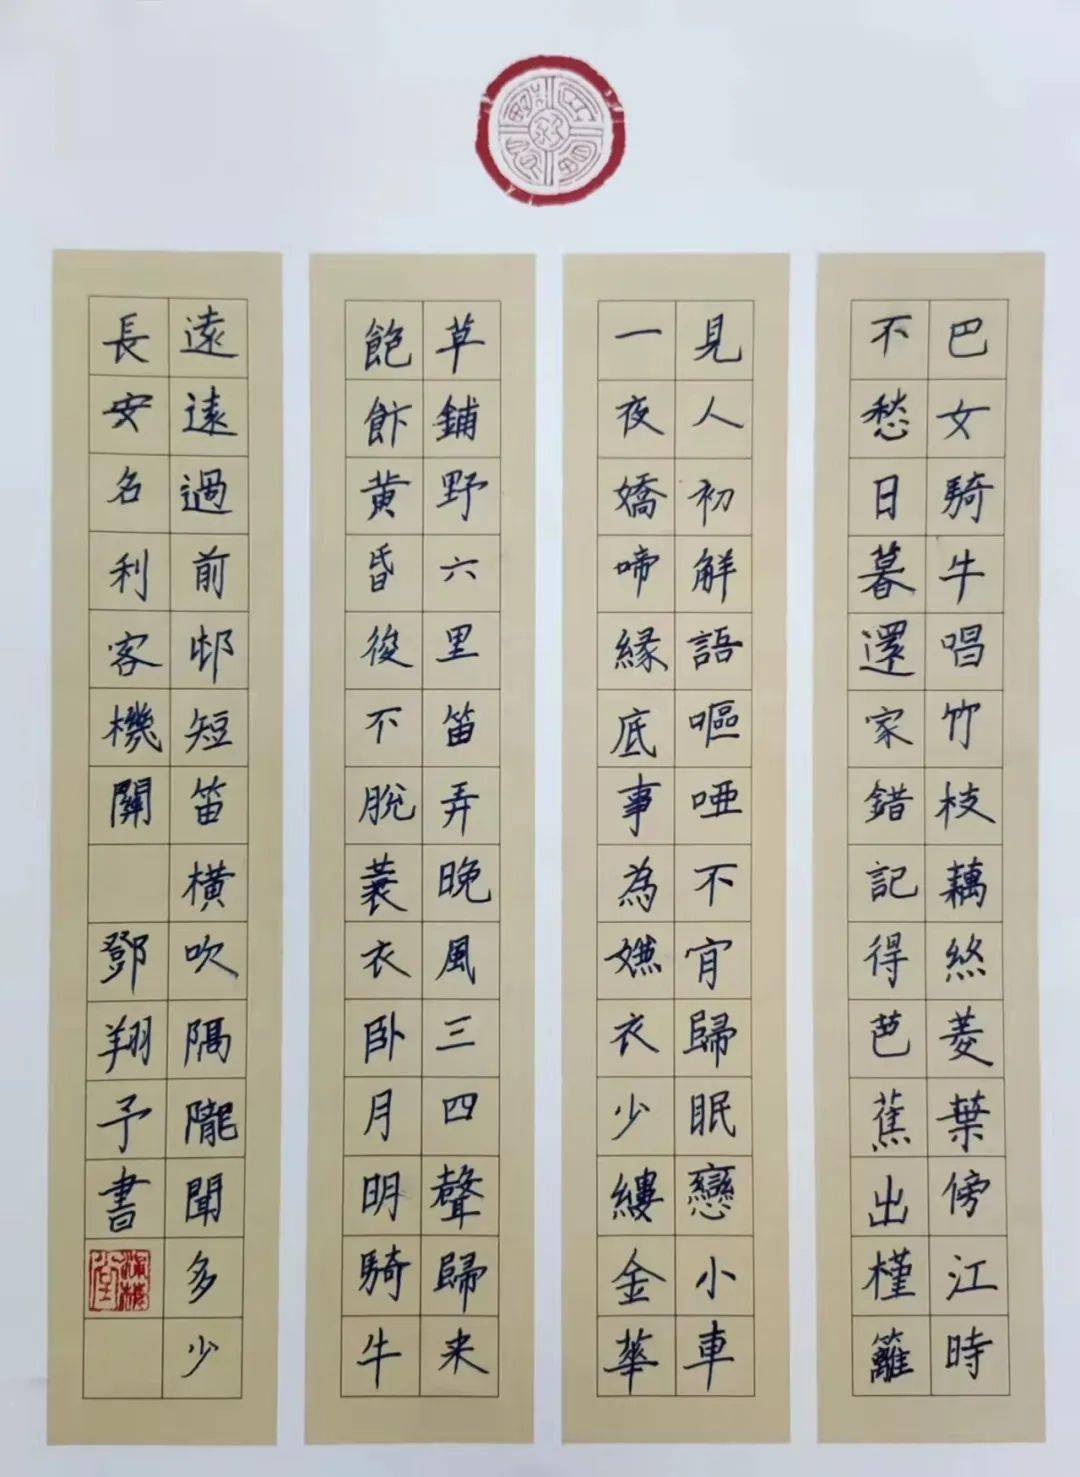 巴女騎牛唱竹枝藕絲菱葉傍江時
不愁日暮還家錯記得芭蕉出槿籬
見人初解語嘔啞不肎歸眠戀小車
一夜嬌啼緣底事為嫌衣少縷金華
草鋪野六里笛弄晚風三四聲歸来
飽飰黃昏後不脫蓑衣卧月明騎牛
遠遠過前邨短笛橫吹隔隴聞多少
長安名利客機關 鄧翔予書